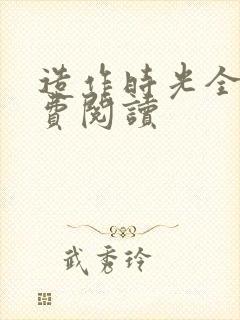 造作時光全
費閱讀
武秀玲